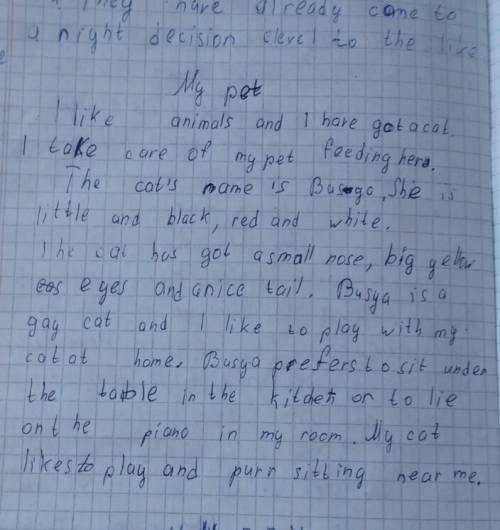 They have already come to
a night decision clevel to the like
My pet
I like animals and I have got a cat.
I take care of my pet feeding hera.
The cat's name is Busga, She is
little and black, red and white.
The cat has got a small nose, big yellow
eyes and a nice tail. Busya is a
gay cat and I like to play with my
cat at home. Busya prefers to sit under
the table in the kitchen or to lie
on the piano in my room. My cat
likes to play and purr sitting near me.